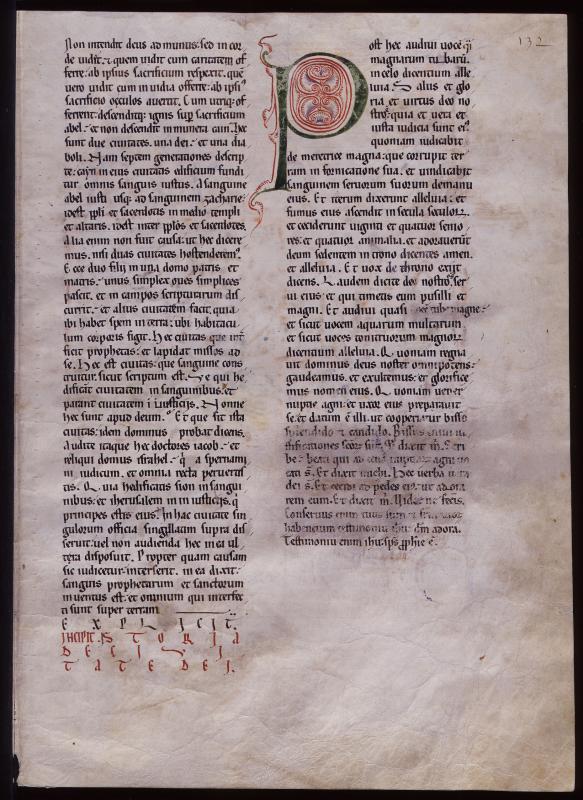 132
Non intendit deus ad munus: sed in cor
de uidit. & quem uidit cum caritatem of
ferre: ab ipsius sacrificium respexit. que
uero uidit cum inuidia offerre: ab ipsi᷒
sacrificio occulos auertit. Cum utriq; of
ferrent: descenditq; ignis sup̄ sacrificium
abel: et non descendit in munera cain. hec
sunt due ciuitates. una dei: et una dia
boli. Nam septem generationes descrip
te: cayn in eius ciuitatis edificium fundi
tur omnis sanguis iustus. A sanguine
abel iusti usq; ad sanguinem zacharie:
idest ppli et sacerdotis in medio templi
et altaris. idest inter pplos et sacerdotes.
Alia enim non fuit causa: ut hec dicere
mus. nisi duas ciuitates hostenderem᷒.
Ecce duo filii in una domo patris et
matris: unus simplex oues simplices
pascit. et in campos scripturarum dis
currit: et alius ciuitatem facit. quia
ibi habet spem in terra: ubi habitacu
lum corporis figit. Hec ciuitas que int̄
ficit prophetas: et lapidat missos ad
se. Hec est ciuitas: que sanguine cons
truitur. sicut scriptum est. Se qui he
dificant ciuitatem in sanguinibus: et
parant ciuitatem in iustitiis. Nonne
hec sunt apud deum. Et que sit ista
ciuitas: idem dominus probat dicens.
Audite itaque hec doctores iacob: et
reliqui domus israhel: qi aspernam
ini iudicium. et omnia recta peruertis
tis. Qui hedificatis sion in sangui
nibus: et iherusalem in iniustitiis. q̄
principes estis eius. In hac ciuitate sin
gulorum officia singillatim supra dis
seruit: uel non audienda hec in ea ul
tera disposuit. Propter quam causam
sic iudicetur. interserit. in ea dixit:
sanguis prophetarum et sanctorum
inuentus est: et omnium qui interfec
ti sunt super terram
EXPLICIT.
INCIPIT. ISTORIA
DE CIVI
TATE DEI.
Post hec audiui uocē q̄i
magnarum tubarū.
in celo dicentium alle
luia. Salus et glo
ria et uirtus deo no
stro: quia et uera et
iusta iudicia sunt ei᷒.
quoniam iudicabit
de meretrice magna: que corrupit ter
ram in fornicatione sua. et uindicabit
sanguinem seruorum suorum de manu
eius. Et iterum dixerunt alleluia: et
fumus eius ascendit in secula seculoꝝ.
et ceciderunt uiginti et quatuor senio
res: et quatuor animalia. et adorauerūt
deum sedentem in trono dicentes amen.
et alleluia. Et uox de throno exiit
dicens. Laudem dicite deo nostro. ser
ui eius: et qui timetis eum pusilli et
magni. Et audiui quasi uocē tube magne:
et sicut uocem aquarum multarum
et sicut uoces tonitruorum magnoꝝ
dicentium alleluia. Quoniam regna
uit dominus deus noster omnipotens:
gaudeamus. et exultemus: et glorifice
mus nomen eius. Quoniam uener
nuptie agni: et uxor eius preparauit
se. et datum ē illi. ut cooperiatur bisso
splendido et candido. Bissus enim iu
stificationes scōꝝ sunt. Et dixit m̄. Scri
be: beati qui ad cenā nuptiaꝝ agni uo
cati s̄. Et dixit michi. Hec uerba uera
dei s̄. Et cecidi ad pedes eius ut adora
rem eum. Et dixit m̄. Uide ne feceris.
Conseruus enim tuus sum et fratrum
habentium testimoniū ihu: dm̄ adora.
Testimoniū enim ihu: sp̄s p̄phie ē.